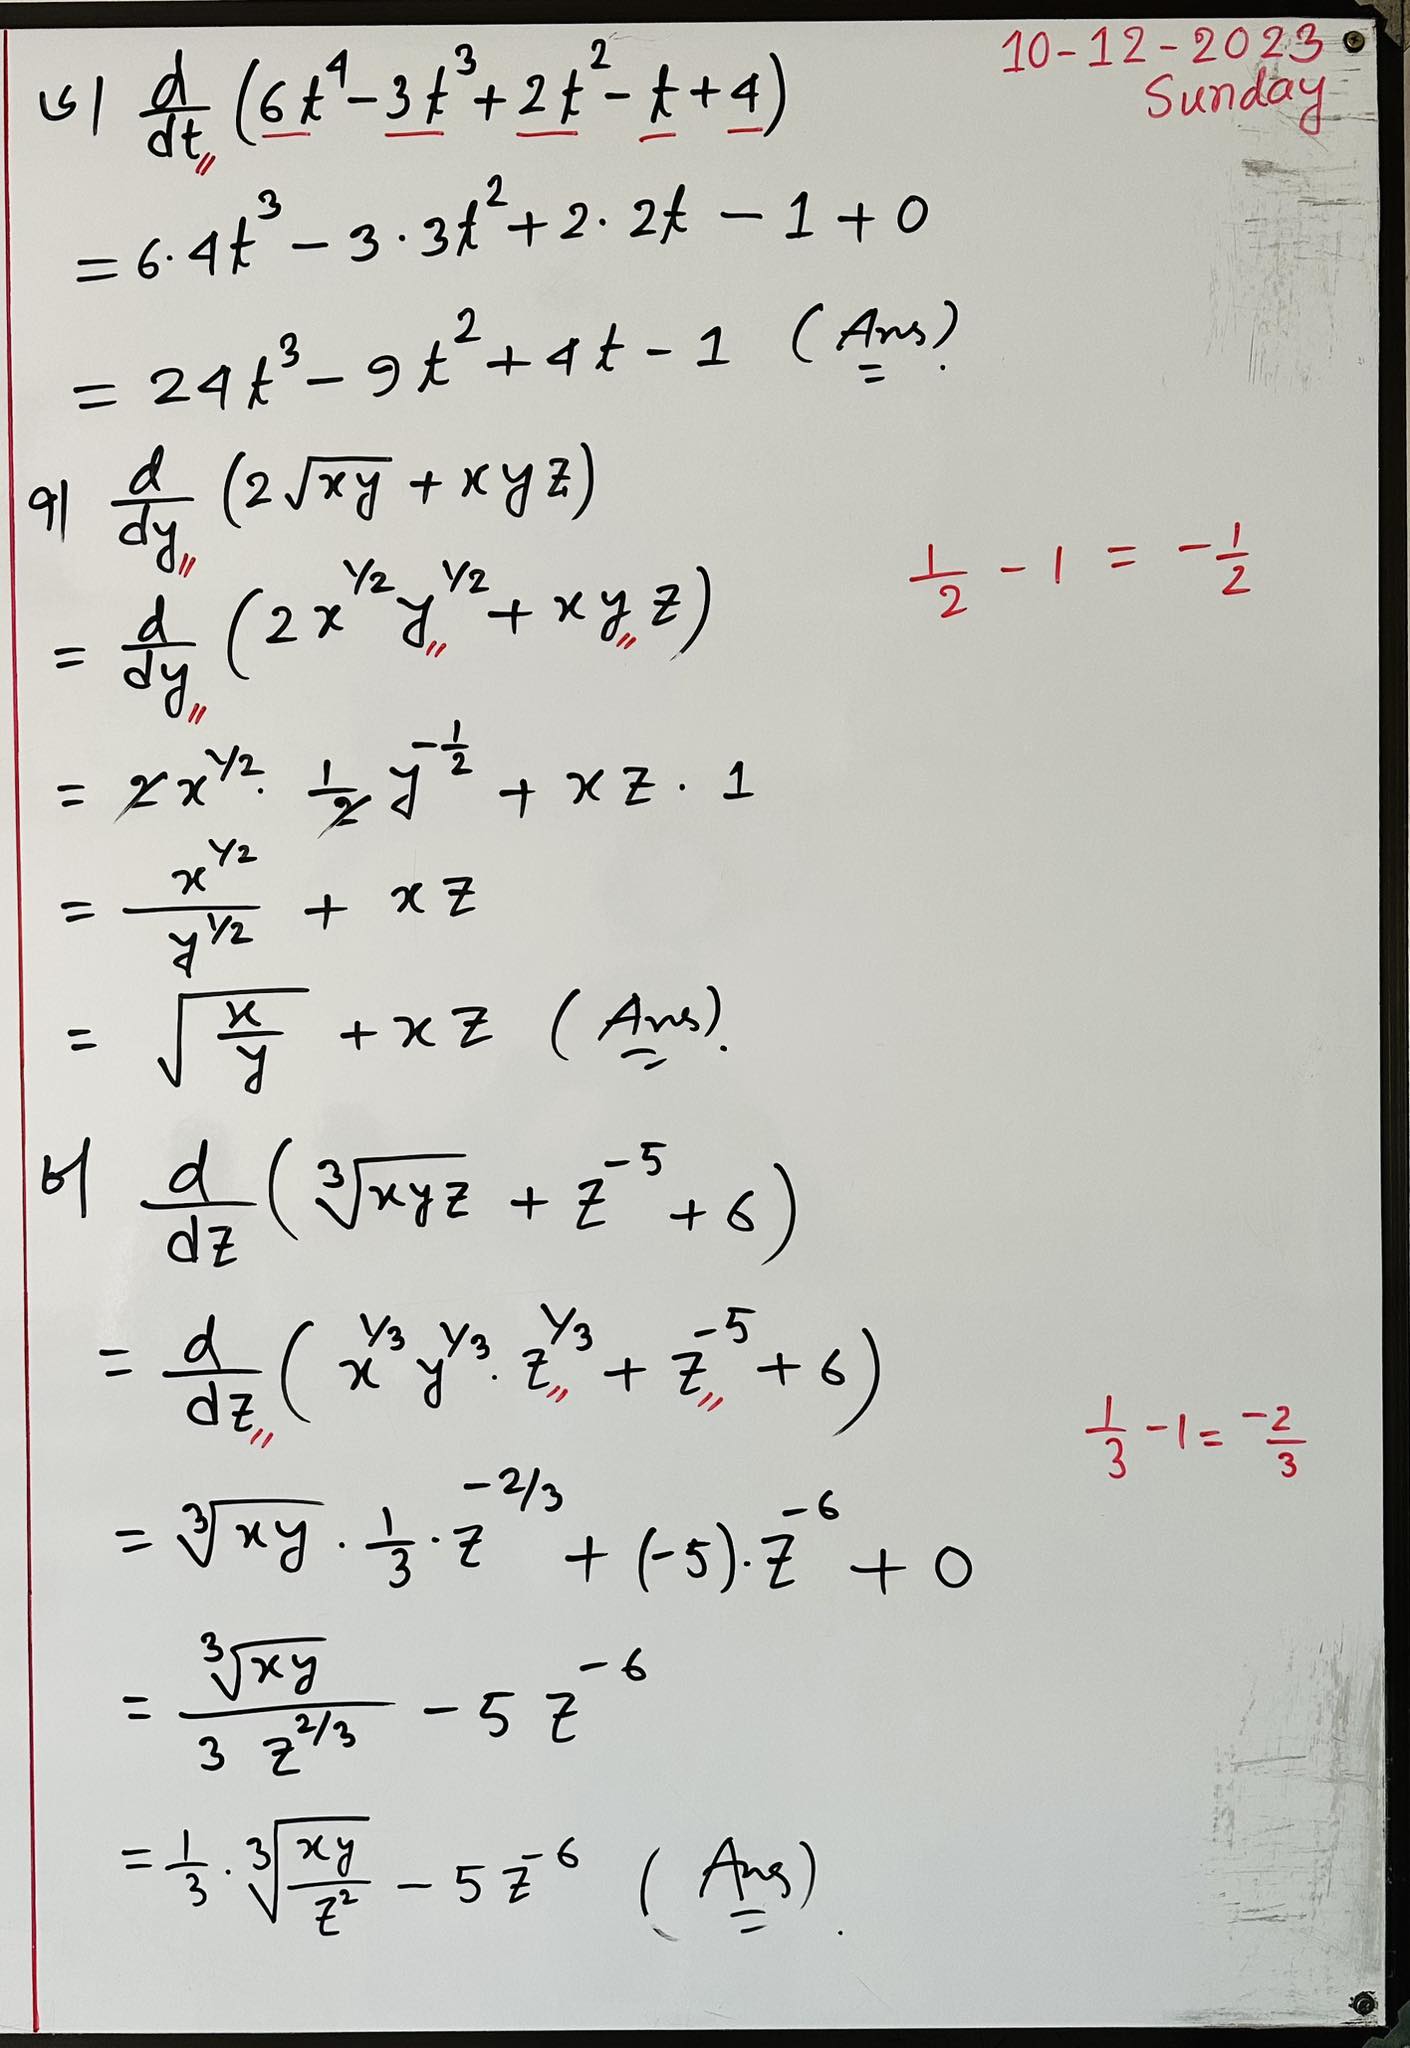 10-12-2023
Sunday
৬। d/dt (6t⁴ - 3t³ + 2t² - t + 4)
= 6·4t³ - 3·3t² + 2·2t - 1 + 0
= 24t³ - 9t² + 4t - 1 (Ans).
৭। d/dy (2√xy + xyz)
= d/dy (2x^1/2 y^1/2 + xyz)
1/2 - 1 = -1/2
= 2x^1/2 · 1/2 y^-1/2 + xz · 1
= x^1/2 / y^1/2 + xz
= √(x/y) + xz (Ans).
৮। d/dz (∛xyz + z⁻⁵ + 6)
= d/dz (x^1/3 y^1/3 · z^1/3 + z⁻⁵ + 6)
1/3 - 1 = -2/3
= ∛xy · 1/3 · z^-2/3 + (-5)·z⁻⁶ + 0
= ∛xy / 3 z^2/3 - 5 z⁻⁶
= 1/3 · ∛(xy/z²) - 5z⁻⁶ (Ans).